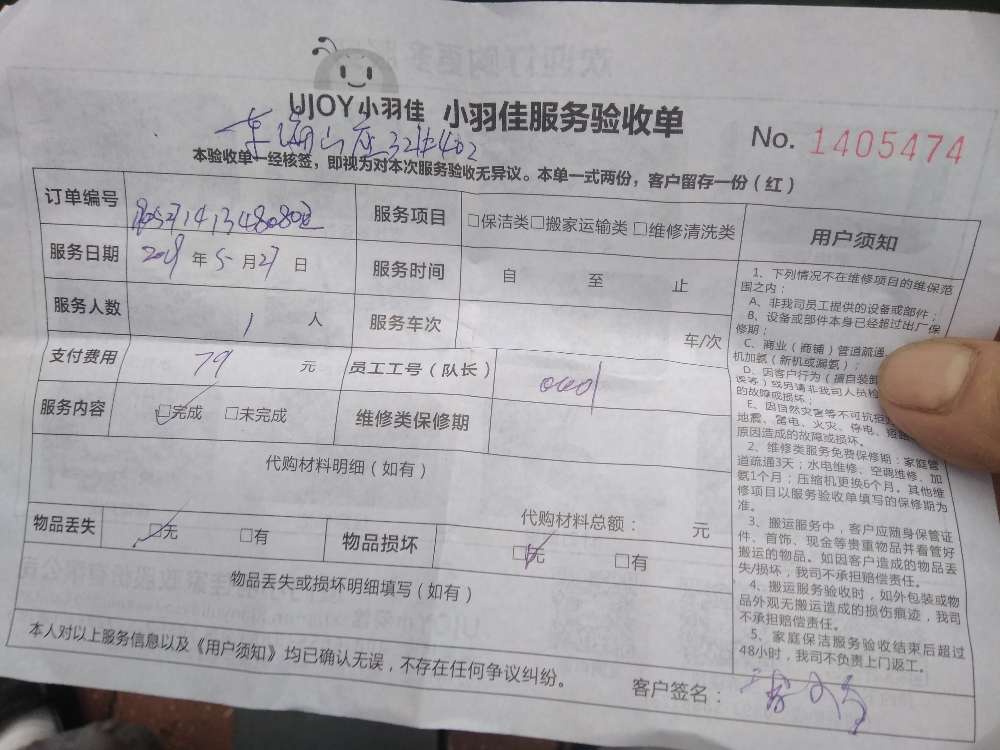 UJOY小羽佳 小羽佳服务验收单
No. 1405474
本验收单一经核签，即视为对本次服务验收无异议。本单一式两份，客户留存一份（红）
订单编号
服务项目 □保洁类□搬家运输类 □维修清洗类
服务日期 2019 年 5 月 27 日
服务时间 自 至 止
服务人数 1 人
服务车次 车/次
支付费用 79 元
员工工号（队长）
服务内容 □完成 □未完成
维修类保修期
代购材料明细（如有）
代购材料总额： 元
物品丢失 □无 □有
物品损坏 □无 □有
物品丢失或损坏明细填写（如有）
本人对以上服务信息以及《用户须知》均已确认无误，不存在任何争议纠纷。
客户签名：
用户须知
1、下列情况不在维修项目的维保范
围之内：
A、非我司员工提供的设备或部件；
B、设备或部件本身已经超过出厂保
修期；
C、商业（商铺）管道疏通
机加氨（新机或漏氨）；
D、因客户行为（擅自装卸
误等）或另请非我司人员检
的故障或损坏；
E、因自然灾害等不可抗拒
地震、雷电、火灾、停电、
原因造成的故障或损坏。
2、维修类服务免费保修期：家庭管
道疏通3天；水电维修、空调维修、加
氨1个月；压缩机更换6个月。其他维
修项目以服务验收单填写的保修期为
准。
3、搬运服务中，客户应随身保管证
件、首饰、现金等贵重物品并看管好
搬运的物品。如因客户造成的物品丢
失/损坏，我司不承担赔偿责任。
4、搬运服务验收时，如外包装或物
品外观无搬运造成的损伤痕迹，我司
不承担赔偿责任。
5、家庭保洁服务验收结束后超过
48小时，我司不负责上门返工。